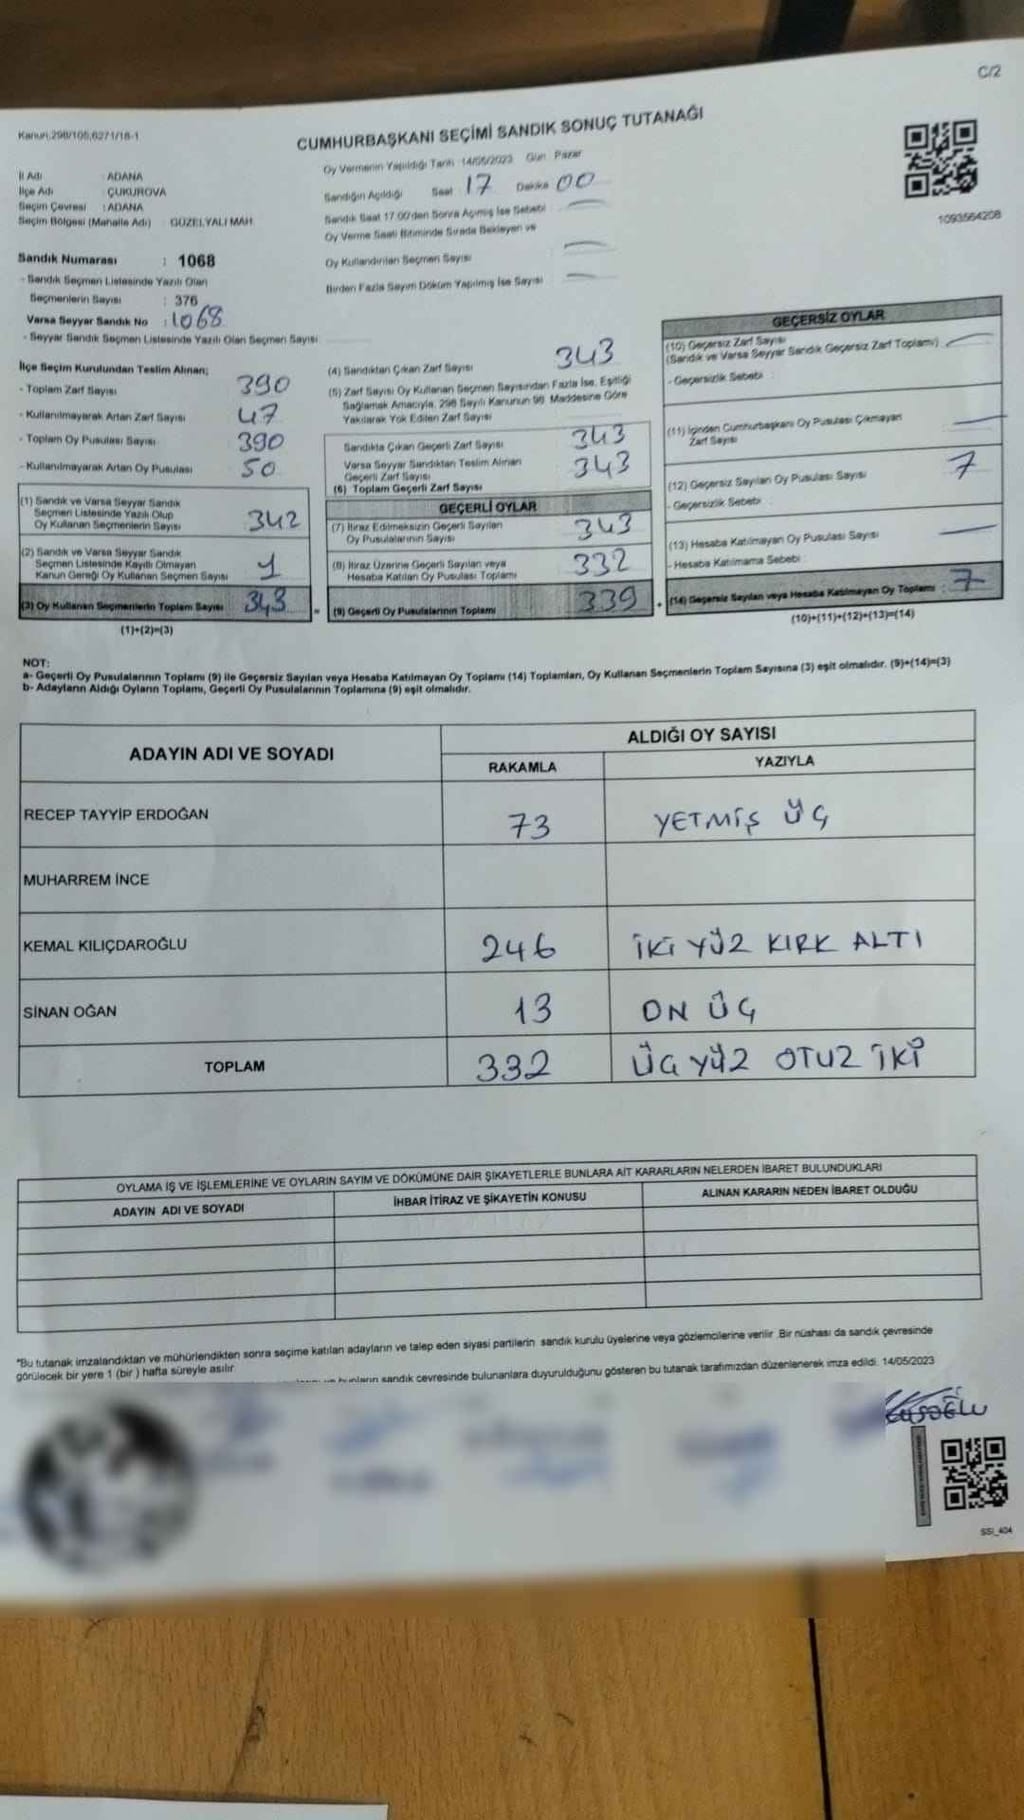 C/2
Kanun,298/105,6271/18-1
CUMHURBAŞKANI SEÇİMİ SANDIK SONUÇ TUTANAĞI
İl Adı : ADANA
İlçe Adı : ÇUKUROVA
Seçim Çevresi : ADANA
Seçim Bölgesi (Mahalle Adı) : GÜZELYALI MAH.
Oy Vermenin Yapıldığı Tarih :14/05/2023 Gün : Pazar
Sandığın Açıldığı Saat 17 Dakika 00
Sandık Saat 17.00'den Sonra Açılmış İse Sebebi
Oy Verme Saati Bitiminde Sırada Bekleyen ve
Oy Kullandırılan Seçmen Sayısı
Birden Fazla Sayım Döküm Yapılmış İse Sayısı
1093564208
Sandık Numarası : 1068
- Sandık Seçmen Listesinde Yazılı Olan
Seçmenlerin Sayısı : 376
Varsa Seyyar Sandık No : 1068
- Seyyar Sandık Seçmen Listesinde Yazılı Olan Seçmen Sayısı
İlçe Seçim Kurulundan Teslim Alınan;
- Toplam Zarf Sayısı 390
- Kullanılmayarak Artan Zarf Sayısı 47
- Toplam Oy Pusulası Sayısı 390
- Kullanılmayarak Artan Oy Pusulası 50
(1) Sandık ve Varsa Seyyar Sandık
Seçmen Listesinde Yazılı Olup
Oy Kullanan Seçmenlerin Sayısı 342
(2) Sandık ve Varsa Seyyar Sandık
Seçmen Listesinde Kayıtlı Olmayan
Kanun Gereği Oy Kullanan Seçmen Sayısı 1
(3) Oy Kullanan Seçmenlerin Toplam Sayısı 343
(1)+(2)=(3)
(4) Sandıktan Çıkan Zarf Sayısı 343
(5) Zarf Sayısı Oy Kullanan Seçmen Sayısından Fazla İse, Eşitliği
Sağlamak Amacıyla, 298 Sayılı Kanunun 98. Maddesine Göre
Yakılarak Yok Edilen Zarf Sayısı
Sandıkta Çıkan Geçerli Zarf Sayısı 343
Varsa Seyyar Sandıktan Teslim Alınan
Geçerli Zarf Sayısı 343
(6) Toplam Geçerli Zarf Sayısı
GEÇERLİ OYLAR
(7) İtiraz Edilmeksizin Geçerli Sayılan
Oy Pusulalarının Sayısı 343
(8) İtiraz Üzerine Geçerli Sayılan veya
Hesaba Katılan Oy Pusulası Toplamı 332
(9) Geçerli Oy Pusulalarının Toplamı 339
GEÇERSİZ OYLAR
(10) Geçersiz Zarf Sayısı
(Sandık ve Varsa Seyyar Sandık Geçersiz Zarf Toplamı)
- Geçersizlik Sebebi :
(11) İçinden Cumhurbaşkanı Oy Pusulası Çıkmayan
Zarf Sayısı
(12) Geçersiz Sayılan Oy Pusulası Sayısı 7
- Geçersizlik Sebebi :
(13) Hesaba Katılmayan Oy Pusulası Sayısı
- Hesaba Katılmama Sebebi :
(14) Geçersiz Sayılan veya Hesaba Katılmayan Oy Toplamı : 7
(10)+(11)+(12)+(13)=(14)
NOT:
a- Geçerli Oy Pusulalarının Toplamı (9) ile Geçersiz Sayılan veya Hesaba Katılmayan Oy Toplamı (14) Toplamları, Oy Kullanan Seçmenlerin Toplam Sayısına (3) eşit olmalıdır. (9)+(14)=(3)
b- Adayların Aldığı Oyların Toplamı, Geçerli Oy Pusulalarının Toplamına (9) eşit olmalıdır.
ADAYIN ADI VE SOYADI ALDIĞI OY SAYISI
RAKAMLA YAZIYLA
RECEP TAYYİP ERDOĞAN 73 YETMİŞ ÜÇ
MUHARREM İNCE
KEMAL KILIÇDAROĞLU 246 İKİ YÜZ KIRK ALTI
SİNAN OĞAN 13 ON ÜÇ
TOPLAM 332 ÜÇ YÜZ OTUZ İKİ
OYLAMA İŞ VE İŞLEMLERİNE VE OYLARIN SAYIM VE DÖKÜMÜNE DAİR ŞİKAYETLERLE BUNLARA AİT KARARLARIN NELERDEN İBARET BULUNDUKLARI
ADAYIN ADI VE SOYADI İHBAR İTİRAZ VE ŞİKAYETİN KONUSU ALINAN KARARIN NEDEN İBARET OLDUĞU
*Bu tutanak imzalandıktan ve mühürlendikten sonra seçime katılan adayların ve talep eden siyasi partilerin sandık kurulu üyelerine veya gözlemcilerine verilir .Bir nüshası da sandık çevresinde
görülecek bir yere 1 (bir ) hafta süreyle asılır.
bunların sandık çevresinde bulunanlara duyurulduğunu gösteren bu tutanak tarafımızdan düzenlenerek imza edildi. 14/05/2023
SSI_404